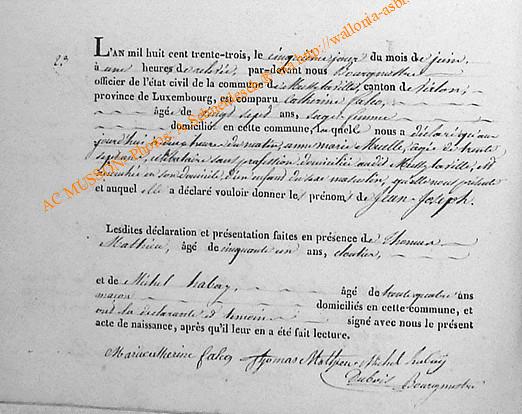 23
L'AN mil huit cent trente-trois, le cinquième jour du mois de juin,
à une heures de relevée, par-devant nous Bourgmestre
officier de l'état civil de la commune de Mussy-la-ville, canton de Virton,
province de Luxembourg, est comparu Catherine
âgée de vingt sept ans, sage femme
domiciliée en cette commune, laquelle nous a déclaré qu'au
jourd'hui à cinq heures du matin, anne marie Mulle, âgée de trente
sept ans, célibataire sans profession domiciliée audit Mussy-la-ville, est
accouchée en son domicile d'un enfant du sexe masculin, qu'elle nous présente
et auquel elle a déclaré vouloir donner les prénom de Jean-Joseph.
Lesdites déclaration et présentation faites en présence de Thomas
Mathieu, âgé de cinquante un ans, cloutier,
et de Michel hubay, âgé de trente quatre ans
maçon domiciliés en cette commune, et
ont la déclarante et témoins signé avec nous le présent
acte de naissance, après qu'il leur en a été fait lecture.
Marie catherine Thomas Mathieu Michel hubay
Bourgmestre
AC MUSSON- Photos - Asbl http://wallonia-asb